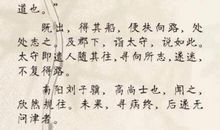 道也。”
既出，得其船，便扶向路，处
处志之。及郡下，诣太守，说如此。
太守即遣人随其往，寻向所志，遂迷，
不复得路。
南阳刘子骥，高尚士也，闻之，
欣然规往。未果，寻病终。后遂无
问津者。